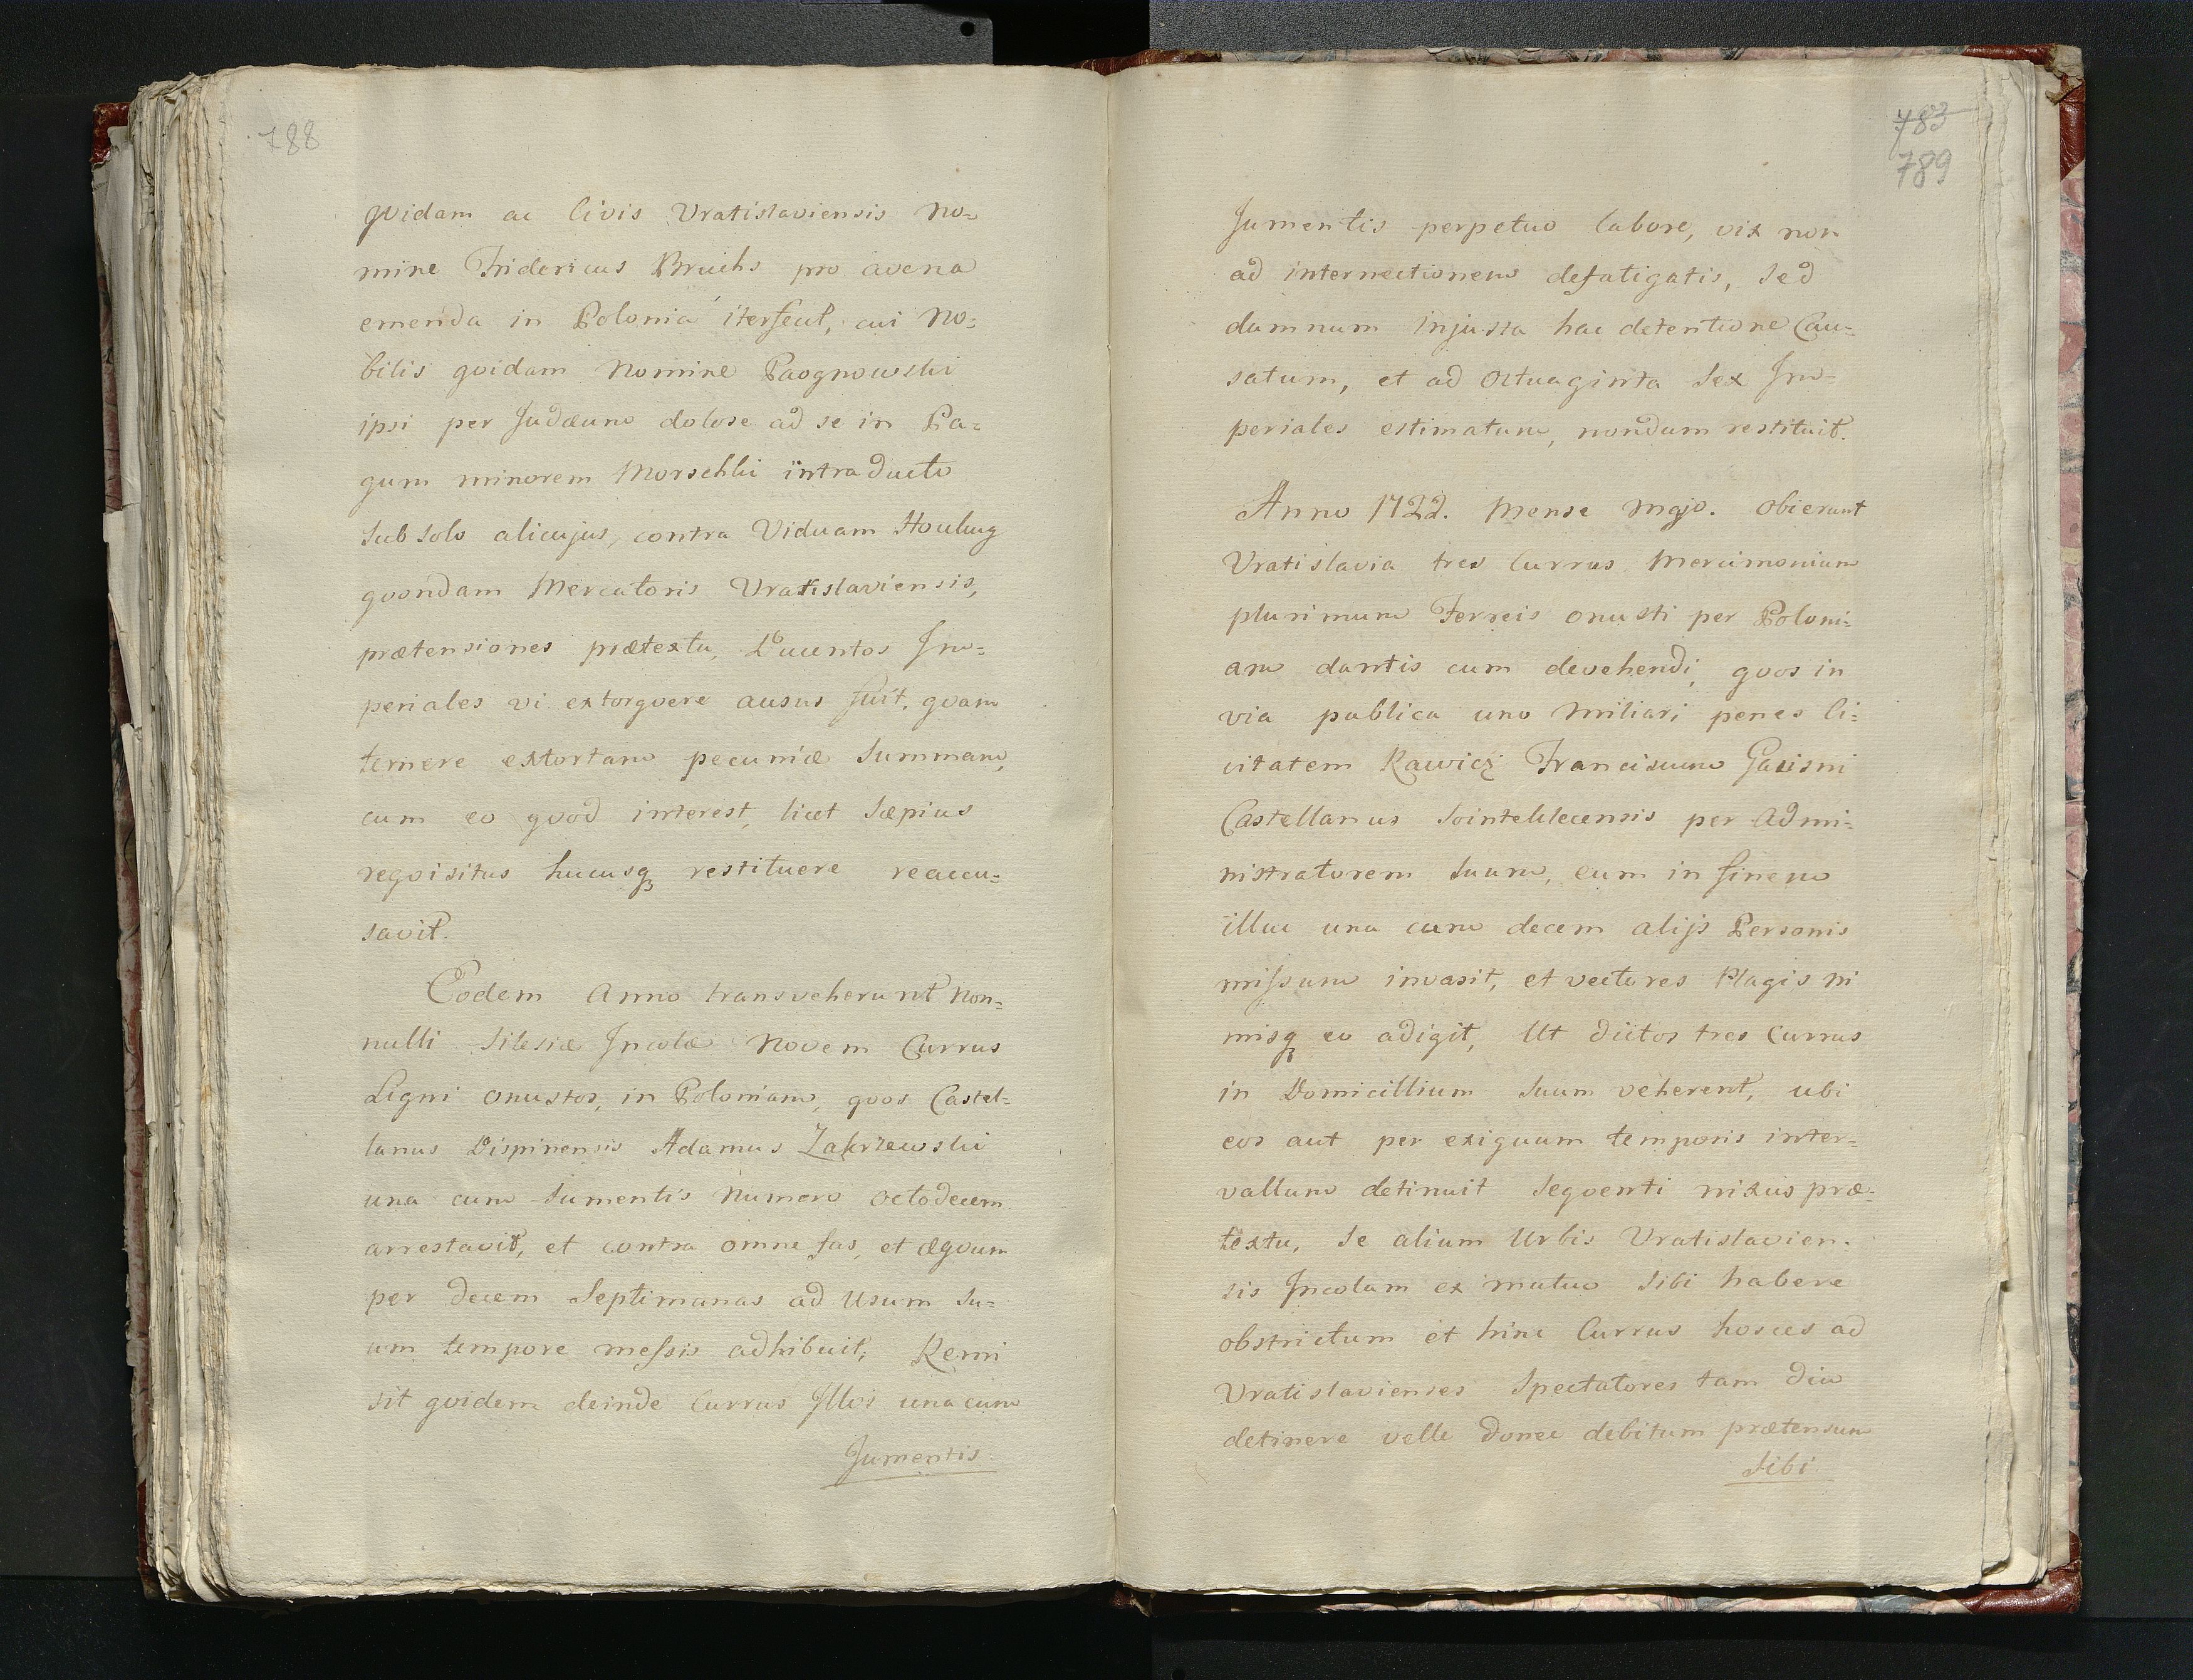 788
qvidam ac Civis Vratislaviensis no=
mine Fridericus Bruchs pro avena
emenda in Poloniá iter fecit, cui No=
bilis qvidam Nomine Paognowski
ipsi per Judæum dolose ad se in Pa=
gum minorem Morschki intraducto
sub solo alicujus, contra Viduam Houlug
qvondam Mercatoris Vratislaviensis,
prætensiones prætextu, Ducentos Im=
periales vi extorqvere ausus fuit, qvam
temere extortam pecuniæ Summam,
cum eo qvod interest, licet Sæpius
reqvisitus hucusq restituere reaccu=
savit.
Eodem Anno transveherunt Non=
nulli Silesiæ Incolæ Novem Currus
Ligni onustos, in Poloniam, qvos Castel=
lanus Dispinensis Adamus Zakrzewski
una cum Jumentis Numero octodecem
arrestavit, et contra omne fas, et æqvum
per decem Septimanas ad Usum Su=
um tempore messis adhibuit; Remi
sit qvidem deinde Currus Illos una cum
Jumentis
783
789
Jumentis perpetuo labore, vix non
ad internectionem defatigatis, Sed
damnum injusta hac detentione Cau=
satum, et ad Octuaginta Sex Im=
periales estimatum, nondum restituit.
Anno 1722. Mense Majo. obierunt
Vratislavia tres Currus Mercimonium
plurimum Ferreis onusti per Poloni=
am dantis cum devehendi, qvos in
via publica uno Miliari penes Ci=
vitatem Rawicz Franciscum Gasisni
Castellanus Sointeklecensis per Admi=
nistratorem Suum, eum in finem
illuc una cum decem alijs Personis
missum invasit, et vectores Plagis ni
misq eo adigit, Ut dictos tres Currus
in Domicillium Suum veherent, ubi
eos aut per exiguum temporis inter=
vallum detinuit Seqventi nixus præ=
textu, Se alium Urbis Vratislavien=
sis Incolam ex mutuo Sibi habere
obstrictum et hinc Currus hosces ad
Vratislavienses Spectatores tam diu
detinere velle donec debitum prætensum
Sibi